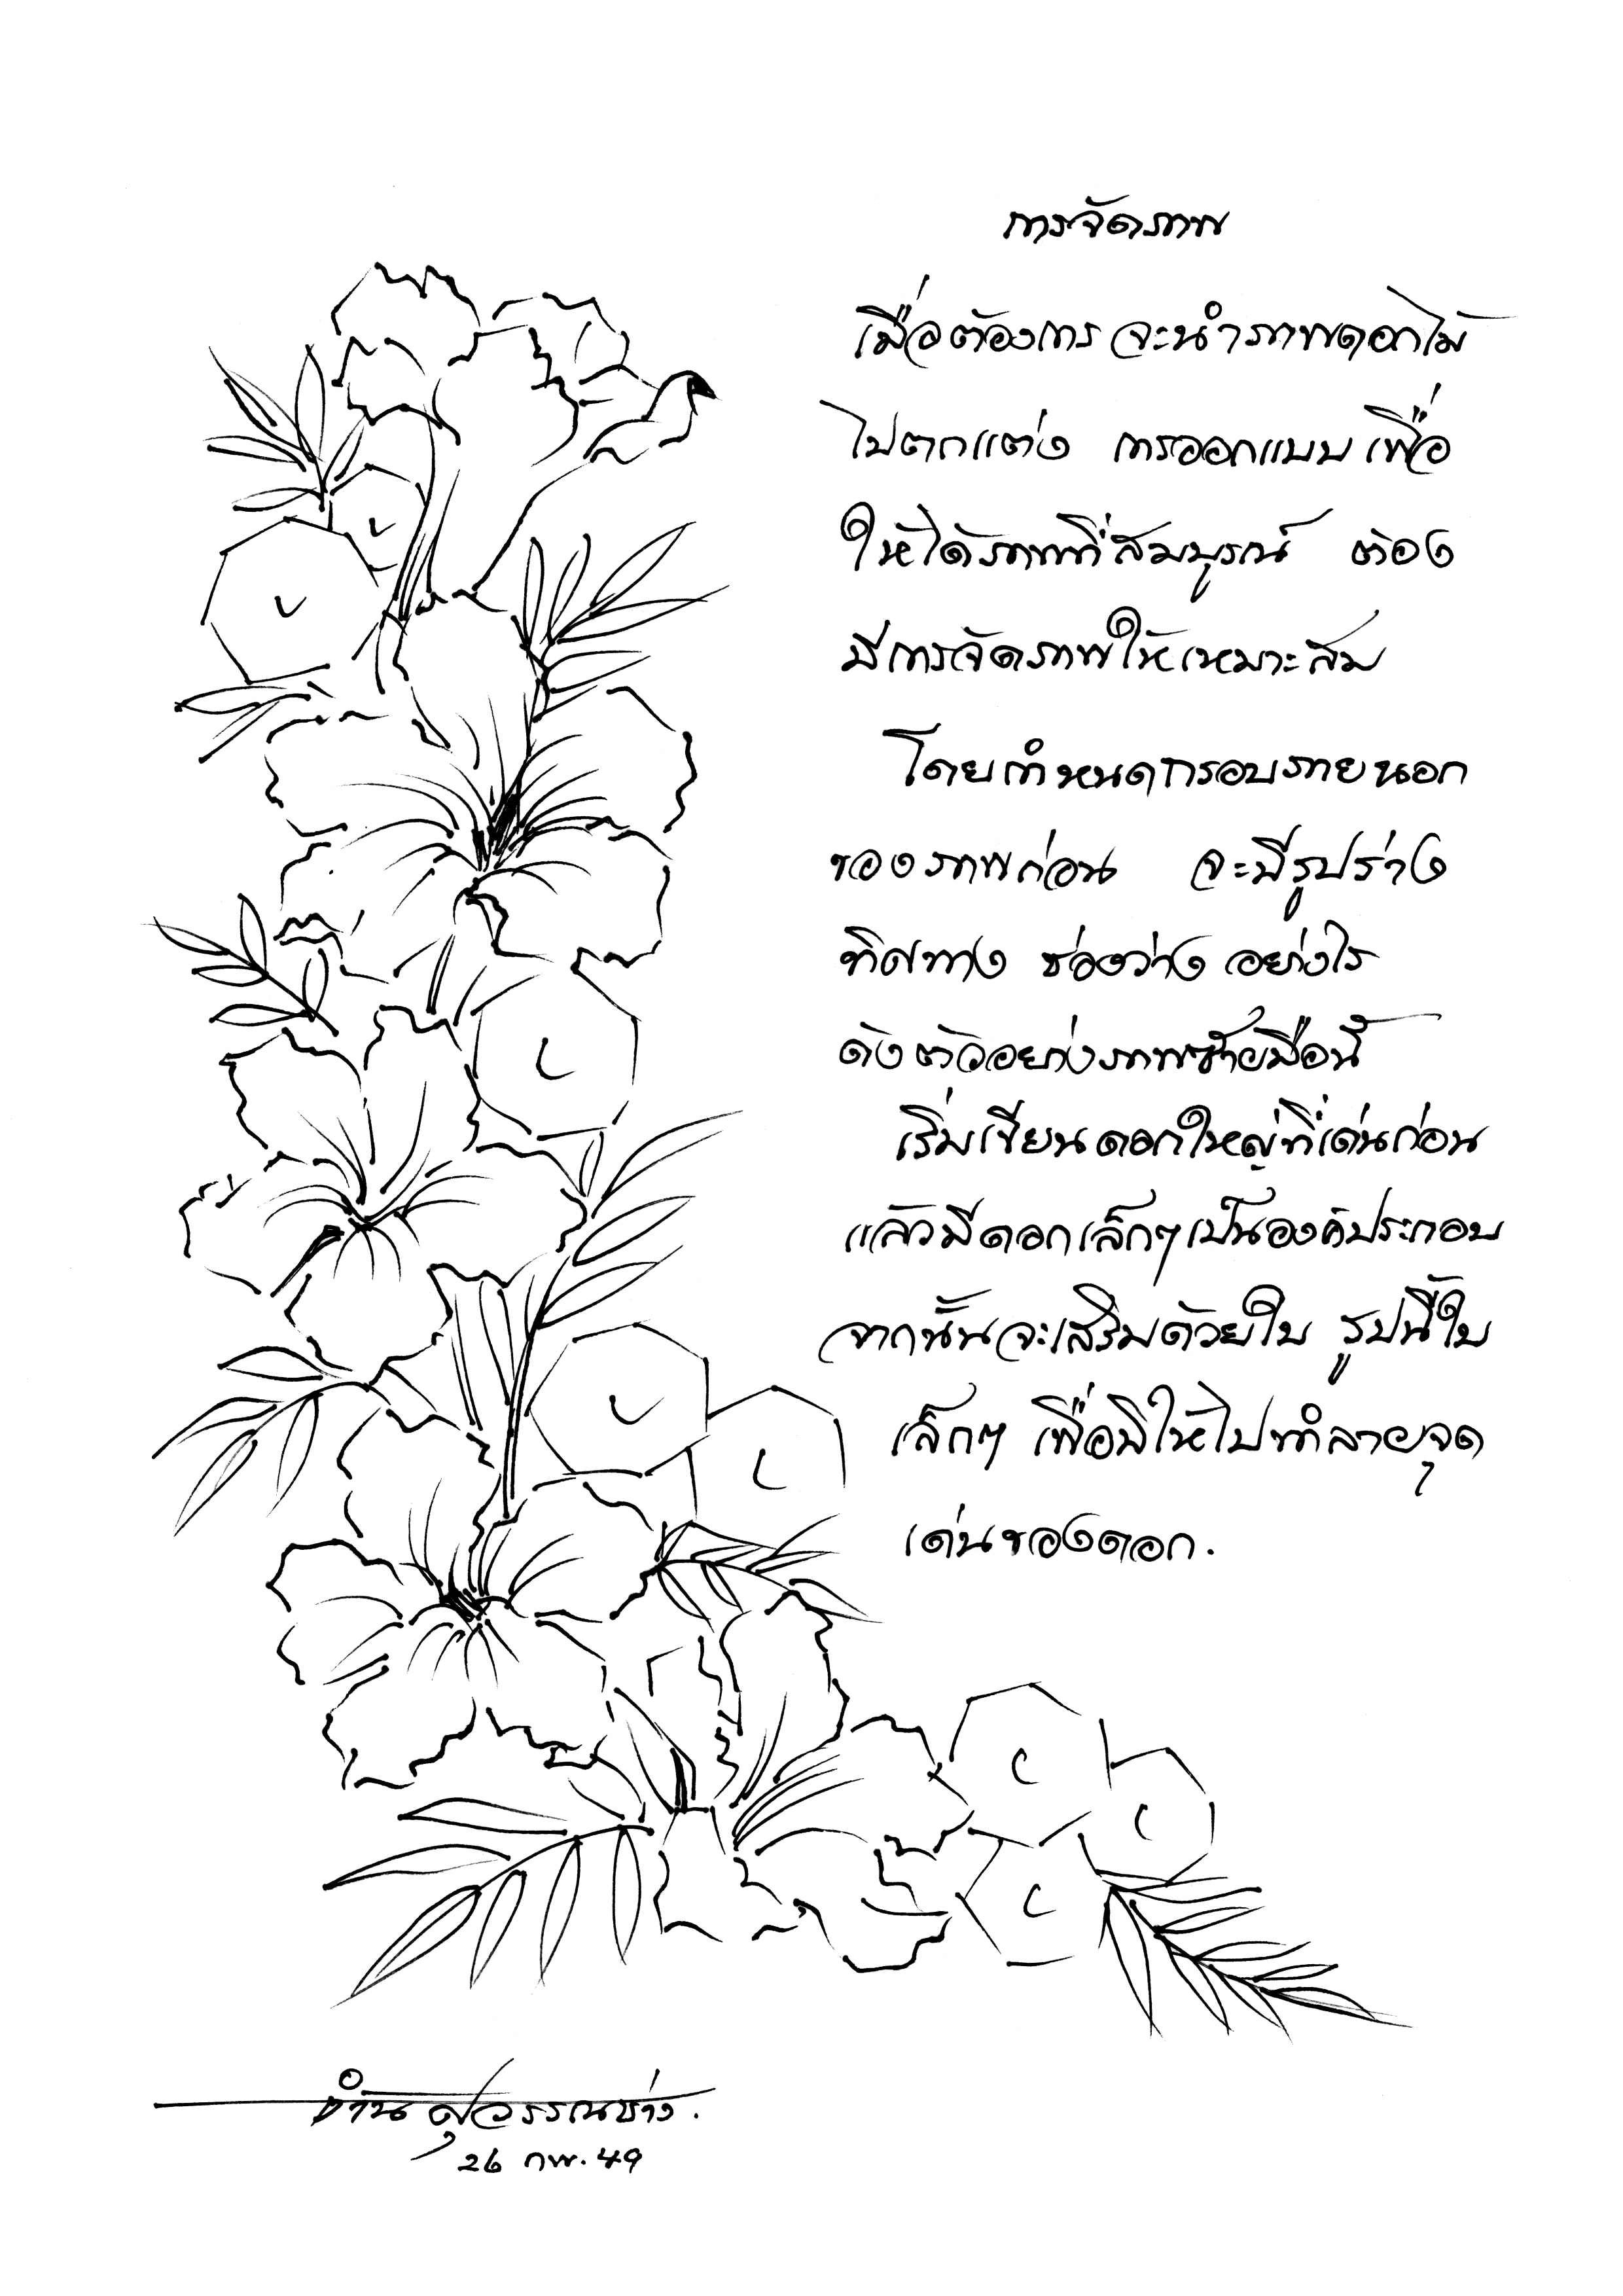 การจัดภาพ
เมื่อต้องการ จะนำภาพดอกไม้
ไปตกแต่ง การออกแบบ เพื่อ
ให้ได้ภาพที่สมบูรณ์ ต้อง
มีการจัดภาพให้เหมาะสม
โดยกำหนดกรอบภายนอก
ของภาพก่อน จะมีรูปร่าง
ทิศทาง ช่องว่าง อย่างไร
ดังตัวอย่างภาพซ้ายมือนี้
เริ่มเขียนดอกใหญ่ที่เด่นก่อน
แล้วมีดอกเล็กๆ เป็นองค์ประกอบ
จากนั้นจะเสริมด้วยใบ รูปนี้ใบ
เล็กๆ เพื่อมิให้ไปทำลายจุด
เด่นของดอก.
สุวรรณช่าง.
26 กพ. 49